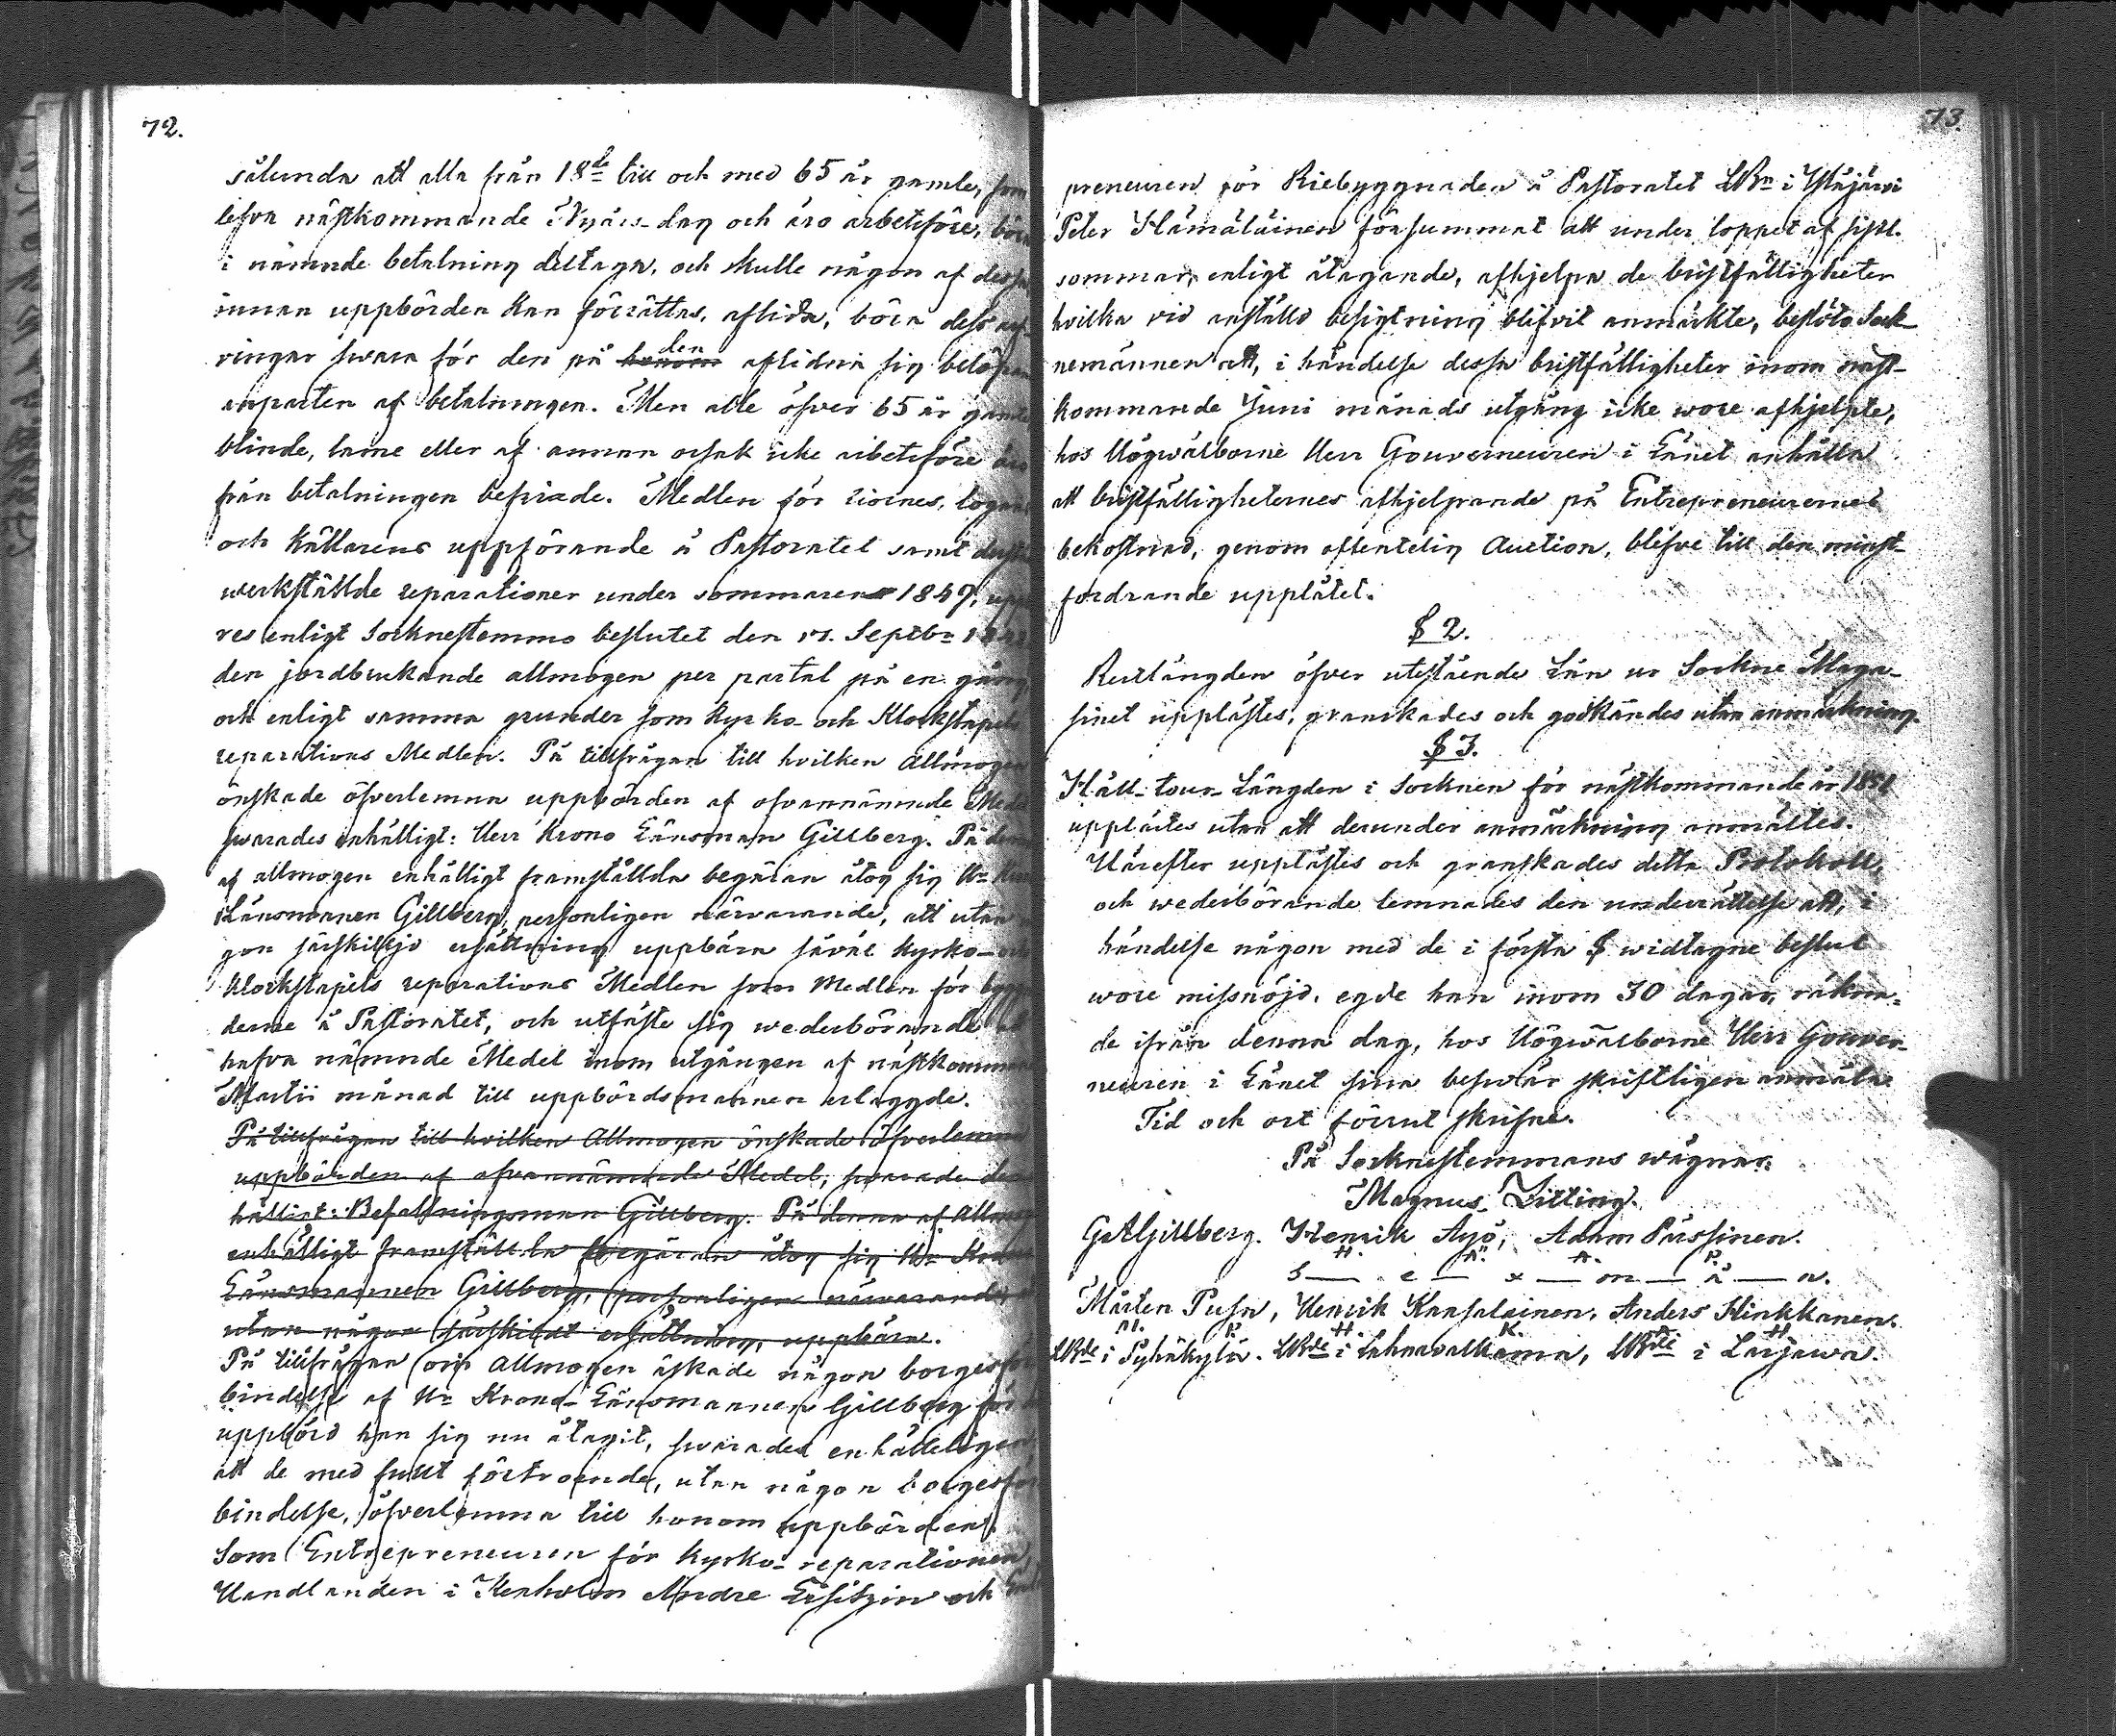 72.
sålunda att alla från 18de till och med 65 år gamle, som
lefva nästkommande Nyårs-dag och äro arbetsföre, böra
i nämnde betalning deltaga, och skulle någon af dessa
innan uppbörden kan förrättas, aflida, böra dess arf-
ringar svara för den på honom den aflidna sig belöpande
anparten af betalningen. Men alle öfver 65 år gamle
blinde, lame eller af annan orsak icke arbetsföre äro
från betalningen befriade. Medlen för riornes, logans
och källarens uppförande å Pastoratet samt
werkställde reparationer under sommaren 1849,
res enligt Socknestemmo beslutet den 17. Septbr
den jordbrukande allmogen per partal på en gång
och enligt samma grunder som kyrko- och Klockstapels
reparations Medlen. På tillfrågan till hvilken Allmogen
önskade öfverlemna uppbörden af ofvannämnde Medel
swarades enhälligt: Herr Krono Länsman Gillberg. På denna
af allmogen enhälligt framställda begäran åtog sig Hr
Länsmannen Gillberg, personligen närvarande, att utan
gon särskildt ersättning uppbära såväl kyrko- och
klockstapels reparations Medlen som Medlen för
derne å Pastoratet, och utfäste sig wederbörande att
hafva nämnde Medel inom utgången af nästkommande
Martii månad till uppbördsmannen erlagde.
På tillfrågan till hvilken Allmogen önskade öfverlemna
uppbörden af ofvannämnde Medel, svarade de
hälligt: Befallningsman Gillberg. På denna af Allmogen
enhälligt framställda begäran åtog sig Hr Krono
Länsmannen Gillberg, personligen närvarande,
utan någon särskildt ersättning, uppbära.
På tillfrågan om Allmogen äskade någon borgesför-
bindelse af Hr Krono-Länsmannen Gillberg för
uppbörd han sig nu åtagit, svarades enhälleligen
att de med fullt förtroende, utan någon borgesför-
bindelse, öfverlemna till honom uppbörden.
Som Entrepreneuren för kyrko-reparationen,
Handlanden i Kexholm Andre Lisitzin och
73.
preneuren för Riebyggnaden å Pastoratet LBn i Yläjärvi
Peter Hämäläinen försummat att under loppet af sistl.
sommar, enligt åtagande, afhjelpa de bristfälligheter
hvilka vid anställd besigtning blifvit anmärkte, beslöto Sock-
nemännen att, i händelse dessa bristfälligheter inom näst-
kommande Juni månads utgång icke wore afhjelpte,
hos Högwälborne Herr Gouverneuren i Länet anhålla
att bristfälligheternes afhjelpande på Entrepreneurernes
bekostnad, genom offentelig Auction, blefve till den minst-
fordrande upplåtet.
§ 2.
Restlängden öfver utestående Lån ur Sockne Maga-
sinet upplästes, granskades och godkändes utan anmärkning.
§ 3.
Håll-tour-Längden i Socknen för nästkommande år 1851
upplästes utan att derunder anmärkning anmältes.
Härefter upplästes och granskades detta Protokoll,
och wederbörande lemnades den underrättelse att, i
händelse någon med de i första § widtagne beslut
wore missnöjd, egde han inom 30 dagar, räkna-
de ifrån denna dag, hos Högwälborne Herr Gouver-
neuren i Länet sina beswär skriftligen anmäla.
Tid och ort förut skrifne.
På Socknestemmans wägnar:
Magnus Zitting.
GAGillberg. Henrik Äyö, Adam Pússinen.
H. Ä. A. P.
S — e — x — m — ä — n.
Mårten Pusa, Henrik Kansalainen, Anders Hinkkanen.
M. P. H. K. A. H.
LBde i Pyhäkylä. LBde i Lahnavalkama, LBde i Larjawa.